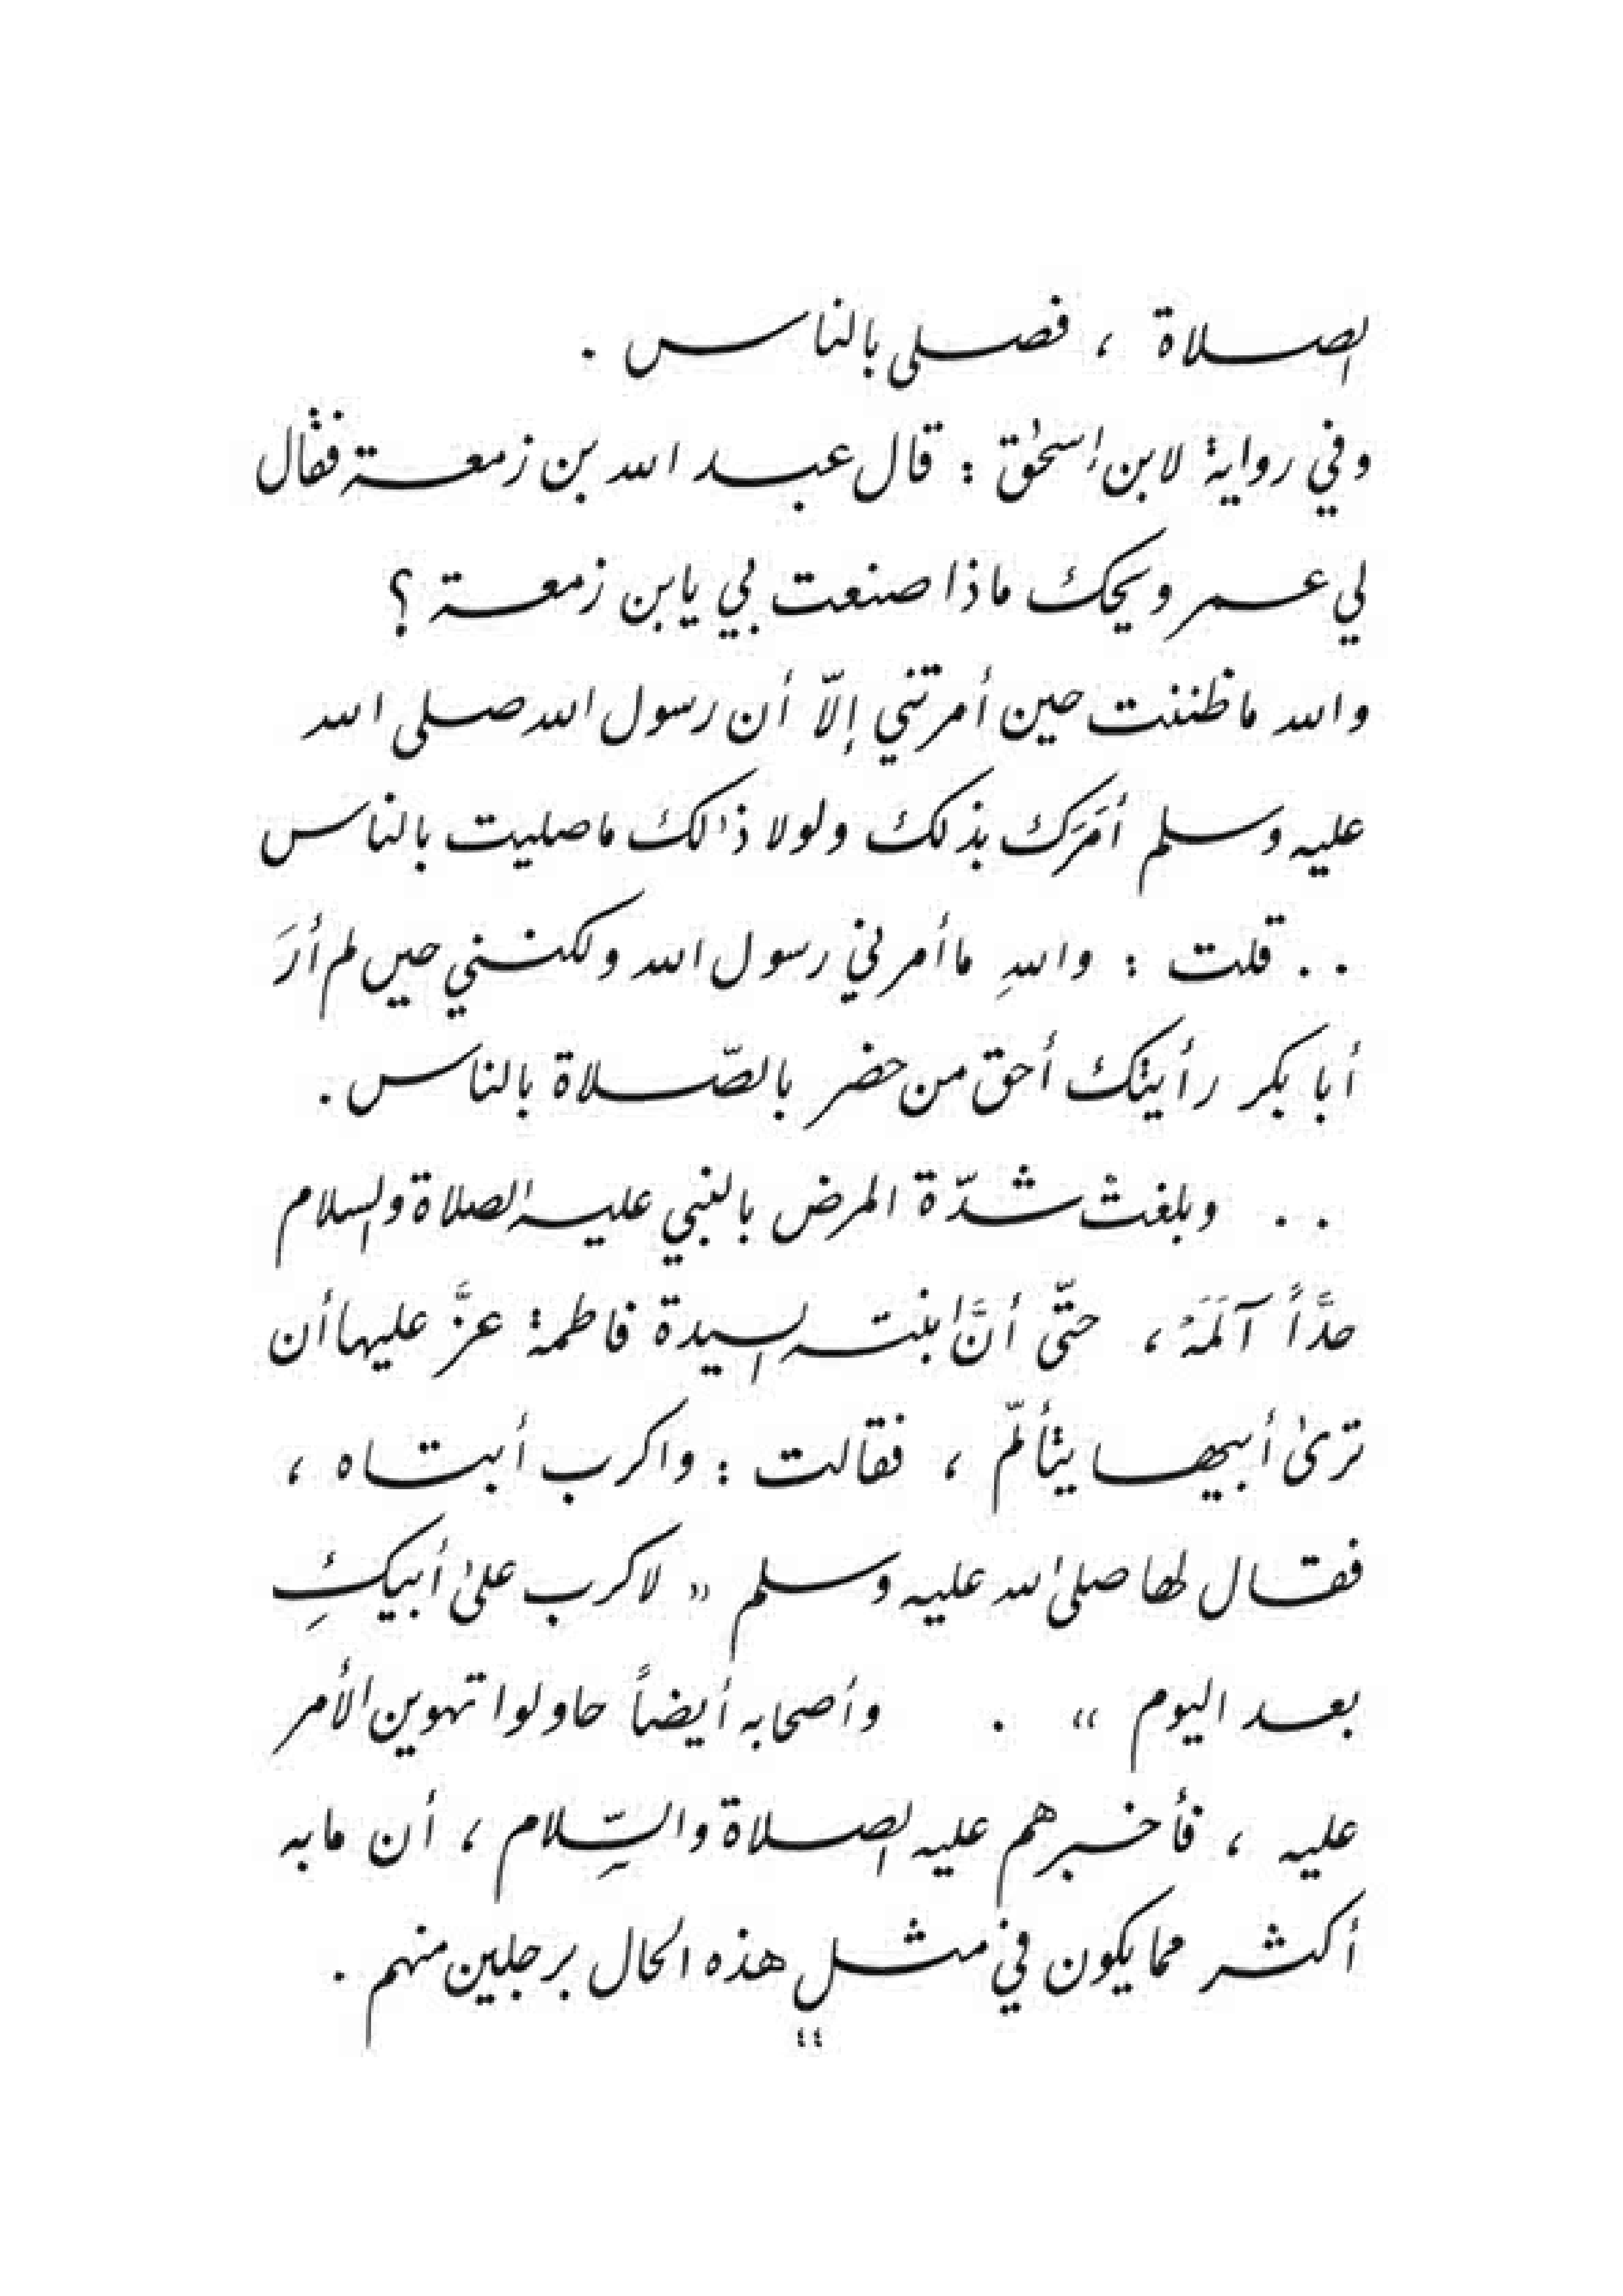 الصلاة ، فصلى بالناس .
وفي رواية لابن إسحٰق : قال عبد الله بن زمعة فقال
لي عمر ويحك ماذا صنعت بي يابن زمعة ؟
والله ما ظننت حين أمرتني إلّا أن رسول الله صلى الله
عليه وسلم أمَرَك بذلك ولولا ذٰلك ما صليت بالناس
. . قلت : واللهِ ما أمرني رسول الله ولكنني حين لم أرَ
أبا بكر رأيتك أحق من حضر بالصّلاة بالناس .
. . وبلغتْ شدّة المرض بالنبي عليه الصلاة والسلام
حدَّاً آلَمَهُ ، حتّى أنَّ ابنته السيدة فاطمة عزَّ عليها أن
ترىٰ أبيها يتألّم ، فقالت : واكرب أبتاه ،
فقال لها صلى الله عليه وسلم « لا كرب علىٰ أبيكِ
بعد اليوم » . وأصحابه أيضاً حاولوا تهوين الأمر
عليه ، فأخبرهم عليه الصلاة والسّلام ، أن ما به
أكثر مما يكون في مثل هذه الحال برجلين منهم .
٤٤